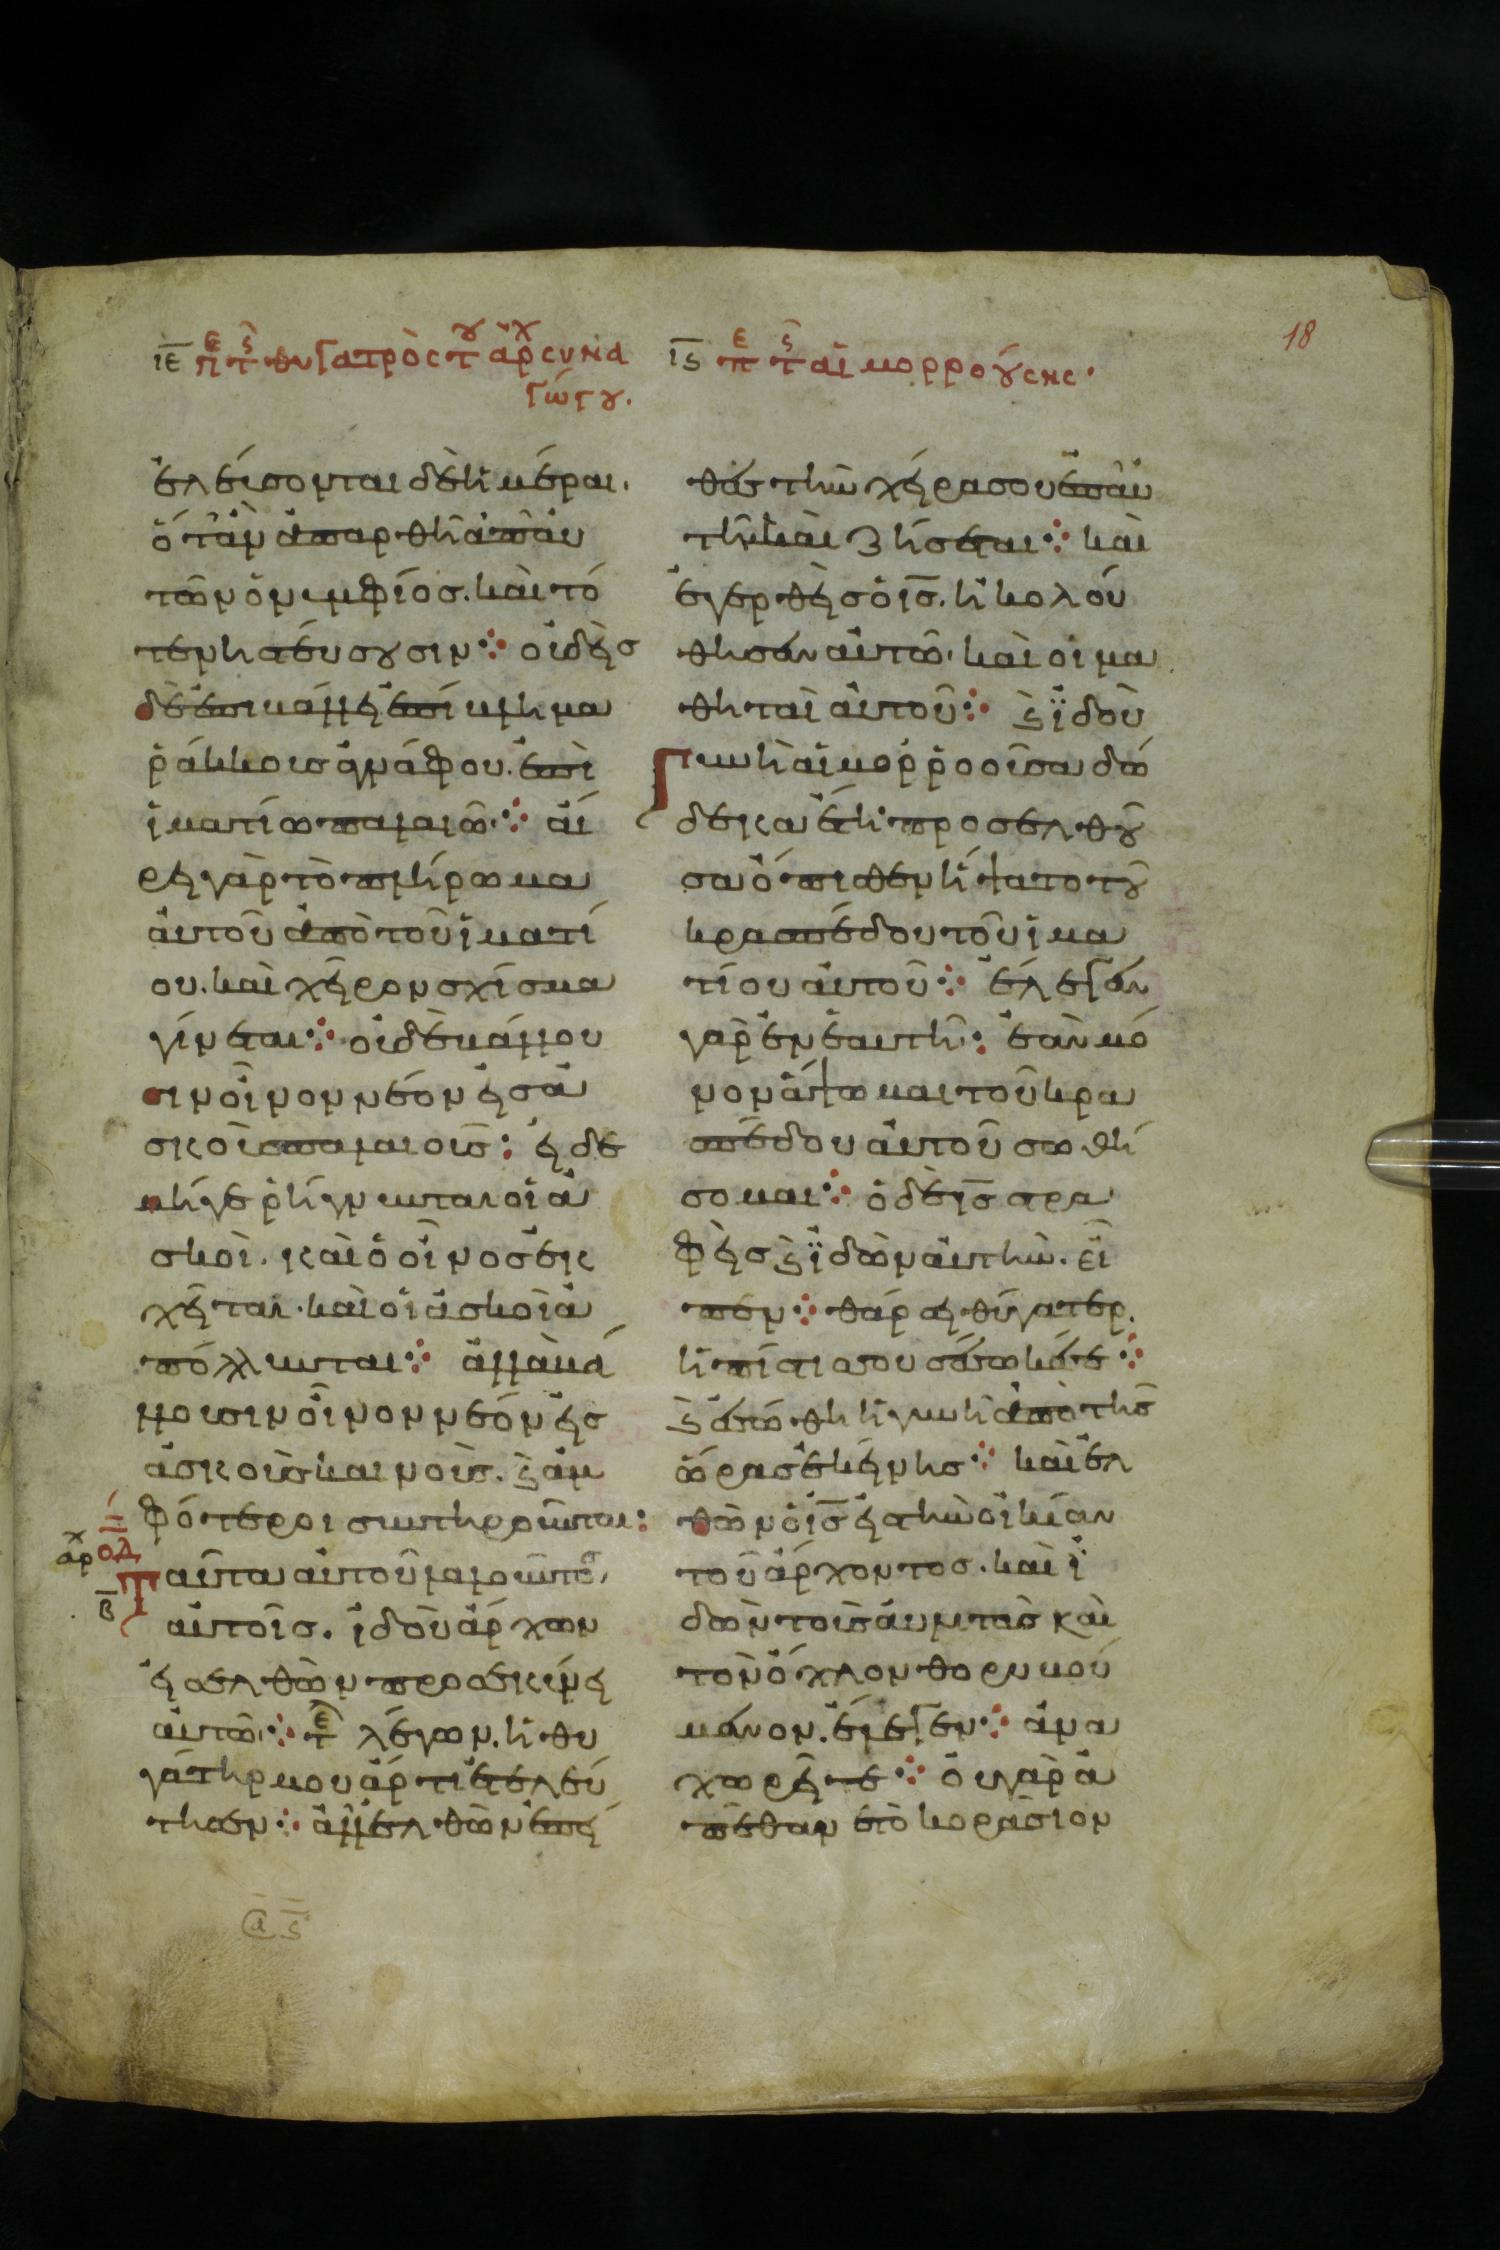 ιε πε τς θυγατρὸς τοῦ ἀρχ συνα
γώγου.
ἐλεύσονται δὲ ἡμέραι.
ὅταν ἀπαρθῆ ἀπ' αὐ
τῶν ὁ νυμφίος. καὶ τό
τε νηστεύσουσιν· οὐδεὶς
δὲ ἐπικάλλει ἐπίκλημα
ῥάκκους ἀγνάφου. ἐπὶ
ἱματίω παλαιῶ· αἴ
ρει γὰρ τὸ πλήρωμα
αὐτοῦ ἀπὸ τοῦ ἱματί
ου. καὶ χεῖρον σχίσμα
γίνεται· οὐδὲ βάλλου
σιν οἶνον νέον εἰς ἀ
σκοὺς παλαιούς: εἰ δὲ
μήγε ῥήγνυνται οἱ ἀ
σκοὶ. καὶ ὁ οἶνος ἐκ
χεῖται. καὶ οἱ ἀσκοὶ ἀ
πόλλυνται· ἀλλὰ βά
λλουσιν οἶνον νέον εἰς
ἀσκοὺς καινοὺς. ϗ ἀμ
φότεροι συντηροῦνται:
ἀρχ οδ
β Ταῦτα αὐτοῦ λαλοῦντος
αὐτοῖς. ἰδοὺ ἄρχων
εἰσελθὼν προσεκύνει
αὐτῶ· τε λέγων. ἡ θυ
γάτηρ μου ἄρτι ἐτελεύ
τησεν· ἀλλ' ἐλθὼν ἐπί
ας
18
ις πε τς αἱμορροούσης.
θες τὴν χεῖρα σου ἐπ' αὐ
τὴν καὶ ζήσεται· καὶ
ἐγερθεὶς ὁ ις. ἠκολού
θησεν αὐτῶ. καὶ οἱ μα
θηταὶ αὐτοῦ· ϗ ἰδοὺ
Γυνὴ αἱμορροοῦσα δώ
δεκα ἔτη προσελθοῦ
σα ὄπισθεν ἥψατο τοῦ
κρασπέδου τοῦ ἱμα
τίου αὐτοῦ· ἔλεγεν
γὰρ ἐν ἑαυτῆ· ἐὰν μό
νον ἅψωμαι τοῦ κρα
σπέδου αὐτοῦ σωθή
σομαι· ὁ δὲ ις στρα
φεὶς ϗ ἰδὼν αὐτὴν. εἶ
πεν· θάρσει θύγατερ.
ἡ πίστις σου σέσωκέ σε·
ϗ ἐσώθη ἡ γυνὴ ἀπὸ τῆς
ὥρας ἐκείνης· καὶ ἐλ
θὼν ὁ ις εἰς τὴν οἰκίαν
τοῦ ἄρχοντος. καὶ ἰ
δὼν τοὺς αὐλητὰς καὶ
τὸν ὄχλον θορυβού
μενον. ἔλεγεν· ἀνα
χωρεῖτε· οὐ γὰρ ἀ
πέθανε τὸ κοράσιον